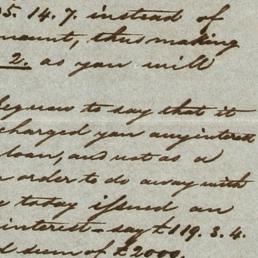 5. 14. 7. instead of
mount, thus making
2. as you will
to say that it
charged you any interest
loan, and not as a
order to do away with
today issued an
interest - say £119. 3. 4.
sum of £2000,